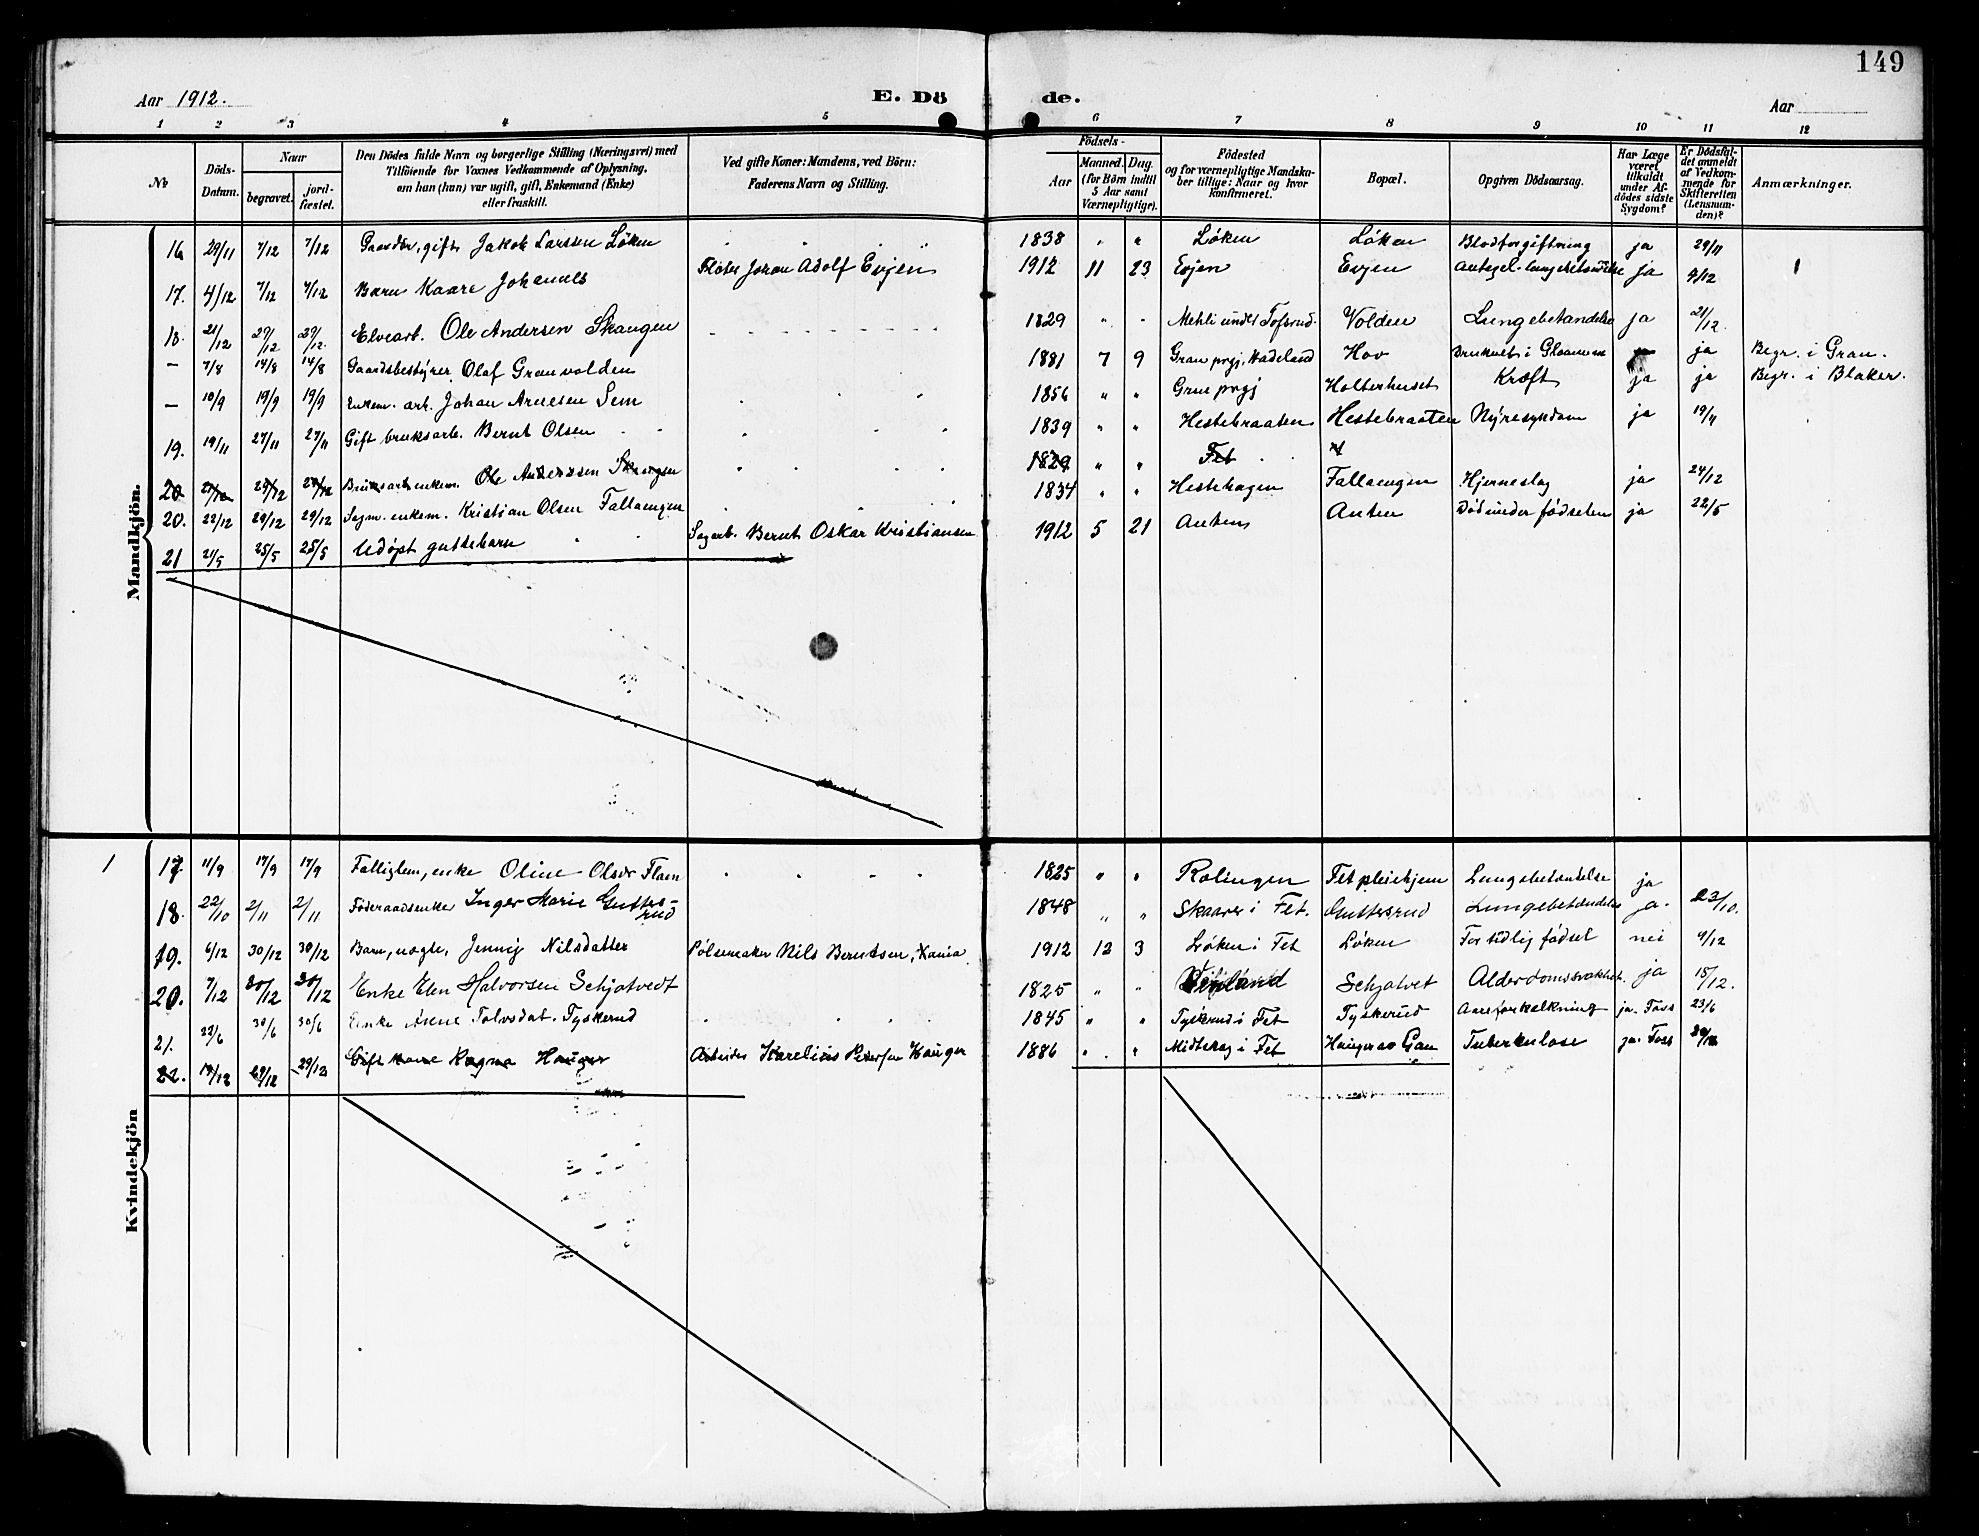 149
Aar 1912.
E. Dö
de.
Aar
1 2 3 4 5 6 7 8 9 10 11 12
№
Döds-Datum.
Naar
begravet.
jord-fæstet.
Den Dödes fulde Navn og borgerlige Stilling (Næringsvei) med
Tilföiende for Voxnes Vedkommende af Oplysning,
om han (hun) var ugift, gift, Enkemand (Enke)
eller fraskilt.
Ved gifte Koner: Mandens, ved Börn:
Faderens Navn og Stilling.
Födsels-
Aar
Maaned. Dag.
(for Börn indtil
5 Aar samt
Værnepligtige).
Födested
og for værnepligtige Mandska-
ber tillige: Naar og hvor
konfirmeret.
Bopæl.
Opgiven Dödsaarsag.
Har Læge
været
tilkaldt
under Af-
dödes sidste
Sygdom?
Er Dödsfal-
det anmeldt
af Vedkom-
mende for
Skifteretten
(Lensman-
den)?
Anmærkninger.
Mandkjön.
16 29/11 7/12 7/12 Gaardbr., gift Jakob Larssen Løken " " " " 1838 " " Løken Løken Blodforgiftning ja 29/11
17. 4/12 7/12 7/12 Barn Kaare Johannes Fløter Johan Adolf Evjen 1912 11 23 Evjen Evjen ja 9/12
18. 21/12 29/12 29/12. Elvearb. Ole Andersen Skaugen 1829 " " Mehli under Tofsrud. Volden Lungebetændelse ja 21/12.
— 7/8 14/8 14/8 Gaardsbestyrer Olaf Granvolden 1881 7 9 Gran prgj. Hadeland Hov Druknet i Glommen ja Begr. i Gran.
— 10/9 19/9 19/9 Enkem. arb. Johan Arnesen Sem 1856 " " Grue prgj Holterhuset Kræft ja ja Begr. i Blaker.
19. 19/11 27/11 27/11 Gift bruksarb. Bernt Olsen 1839 " " Hestebraaten Hestebraaten Nyresygdom ja 19/11
20 21/12 29/12 29/12 Bruksarb. enkem. Ole Anderssen Skaugen 1829 " " Fet
20. 22/12 29/12 29/12 Sagm. enkem. Kristian Olsen Fallaengen 1834 " " Hestehagen Fallaengen Hjerneslag ja 24/12
21 21/5 25/5 25/5 Udøpt guttebarn Sagarb. Bernt Oskar Kristiansen 1912 5 21 Anten Anten Död under födselen ja 22/5
Kvindekjön
1
17 11/9 17/9 17/9 Fattiglem, enke Oline Olsdr Flaen 1825 " " Rælingen Fet pleiehjem Lungebetændelse ja
18. 22/10 2/11 2/11 Føderaadsenke Inger Marie Guttersrud 1848 " " Skaarer i Fet. Guttersrud Lungebetændelse ja. 23/10.
19. 6/12 30/12 30/12 Barn, uægte, Jenny Nilsdatter Pølsemaker Nils Berntsen, Xania 1912 12 3 Løken i Fet Løken For tidlig födsel nei 9/12
20. 7/12 30/12 30/12 Enke Elen Halvorsen Schjatvedt 1825 " " Schjatvet Alderdomssvakhet. ja 15/12.
21. 22/6 30/6 30/6 Enke Anne Tolvsdat. Tyskerud 1845 " " Tyskerud i Fet Tyskerud Aareforkalkning ja. Foss 23/6
22. 19/12 29/12 29/12 Gift kone Ragna Hauger Arbeider Karelius Petersen Hauger 1886 " " Midtskog i Fet Hauger av Gan Tuberkulose ja. Foss